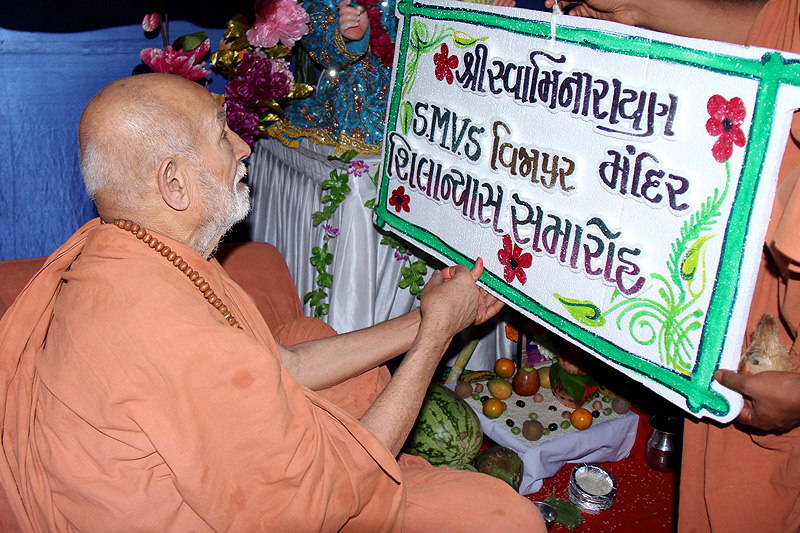 શ્રી સ્વામિનારાયણ
SMVS વિજાપુર મંદિર
શિલાન્યાસ સમારોહ